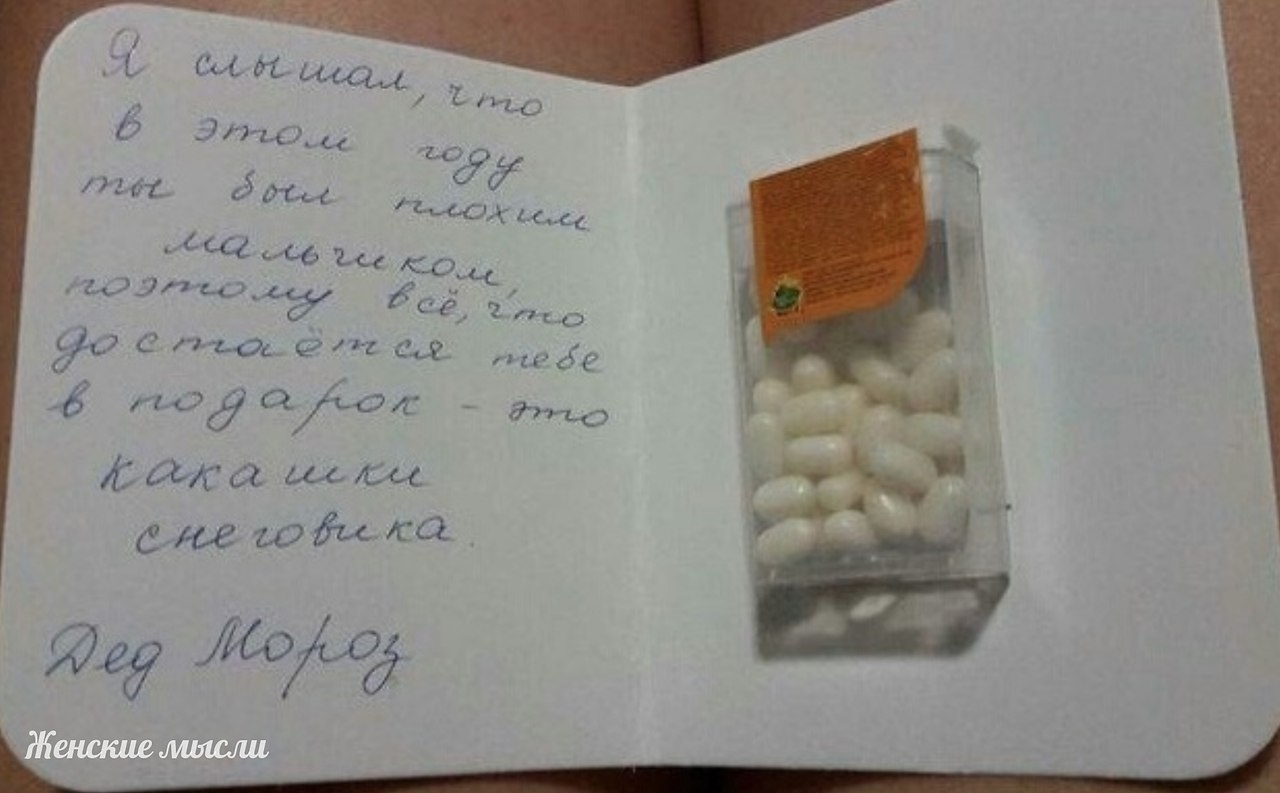 Я слышал, что
в этом году
ты был плохим
мальчиком,
поэтому всё, что
достаётся тебе
в подарок - это
какашки
снеговика.
Дед Мороз
Женские мысли